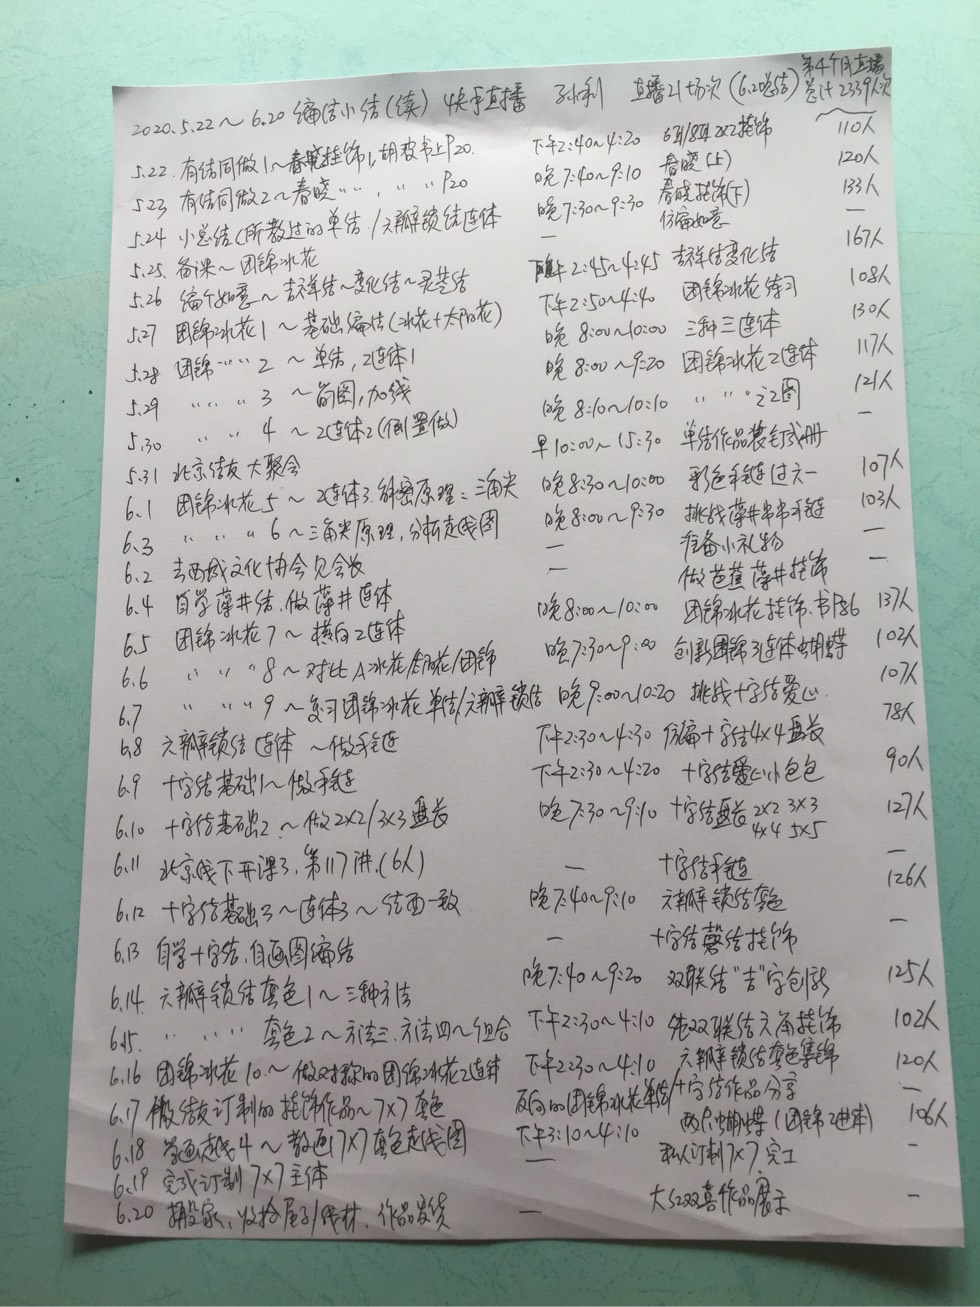 第4个月直播
2020.5.22～6.20 编结小结(续) 快手直播 孙利 直播21场次(6.20总结) 总计2339人次
5.22 有结同做1～春晓挂饰1,胡波书上P20. 下午2:40～4:20 2×2挂饰 110人
5.23 有结同做2～春晓〃〃 〃 〃 P20 晚7:40～9:10 春晓(上) 120人
5.24 小总结(所教过的单结/六瓣锁结连体 晚7:30～9:30 春晓挂饰(下) 133人
5.25 备课～团锦冰花 — 仿编如意 —
5.26 编个如意～吉祥结～变化结～灵芝结 下午2:45～4:45 吉祥结变化结 167人
5.27 团锦冰花1～基础编结(冰花+太阳花) 下午2:50～4:40 团锦冰花练习 108人
5.28 团锦〃〃 2 ～单结,2连体1 晚8:00～10:00 三种三连体 130人
5.29 〃 〃 〃 3 ～ 图,加线 晚8:00～9:20 团锦冰花2连体 117人
5.30 〃 〃 4 ～2连体2(倒置做) 晚8:10～10:10 〃 〃 〃之2图 121人
5.31 北京结友大聚会 早10:00～15:30 单结作品装订成册 —
6.1 团锦冰花5～2连体3.解密原理=三角尖 晚8:30～10:00 彩色手链过六一 107人
6.3 〃 〃 〃 6～三角尖原理,分析走线图 晚8:00～9:30 挑战藻井串串手链 103人
6.2 去西城文化协会见会长 — 准备小礼物 —
6.4 自学藻井结.做藻井连体 — 做芭蕉藻井挂饰 —
6.5 团锦冰花7～横向2连体 晚8:00～10:00 团锦冰花挂饰.书P86 137人
6.6 〃 〃 〃8～对比A冰花/太阳花/团锦 晚7:30～9:00 创新团锦3连体蝴蝶 102人
6.7 〃 〃 〃9～复习团锦冰花单结/六瓣锁结 晚9:00～10:20 挑战十字结爱心 107人
6.8 六瓣锁结连体 ～做手链 下午2:30～4:30 仿编十字结4×4盘长 78人
6.9 十字结基础1～做手链 下午2:30～4:20 十字结爱心小包包 90人
6.10 十字结基础2～做2×2/3×3盘长 晚7:30～9:10 十字结盘长2×2 3×3 127人
4×4 5×5
6.11 北京线下开课3.第117讲.(6人) — 十字结手链 —
6.12 十字结基础3～连体3～结西一致 晚7:40～9:10 六瓣锁结套色 126人
6.13 自学十字结,自画图编结 — 十字结磬结挂饰 —
6.14 六瓣锁结套色1～三种方法 晚7:40～9:20 双联结"吉"字创新 125人
6.15. 〃 〃 〃 套色2～方法三.方法四～组合 下午2:30～4:10 纯双联结六角挂饰 102人
6.16 团锦冰花10～做对称的团锦冰花2连体 下午2:30～4:10 六瓣锁结套色集锦 120人
6.17 做结友订制的挂饰作品～7×7套色 反向的团锦冰花单结/十字结作品分享 —
6.18 走线4～教画7×7套色走线图 下午3:10～4:10 两只蝴蝶(团锦2连体) 106人
6.19 完成订制7×7主体 — 私人订制7×7完工 —
6.20 搬家,收拾屋子/线材.作品发货 — 大红双喜作品展示 —